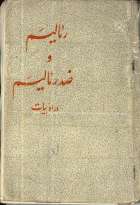 رئالیسم
و
ضدرئالیسم
در ادبیات